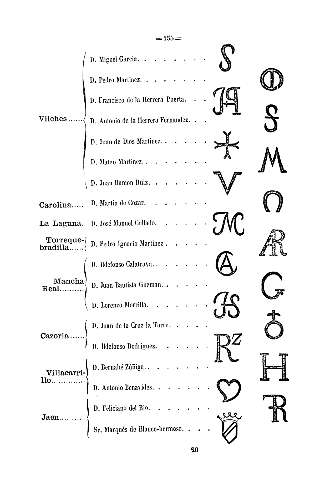 — 155 —
D. Miguel García.
D. Pedro Martinez.
D. Francisco de la Herrera Puerta.
Vilches D. Antonio de la Herrera Fernandez.
D. Juan de Dios Martinez.
D. Mateo Martinez.
D. Juan Ramon Ruiz.
Carolina D. Martin de Cozar.
La Laguna. D. José Manuel Collado.
Torreque-
bradilla D. Pedro Ignacio Martinez
D. Ildefonso Calatrava
Mancha
Real D. Juan Bautista Guzman
D. Lorenzo Morilla.
D. Juan de la Cruz la Torre.
Cazorla
D. Ildefonso Rodriguez.
Villacarri-
llo D. Bernabé Zúñiga
D. Antonio Benavides.
D. Feliciano del Rio.
Jaen
Sr. Marqués de Blanco-hermoso.
20